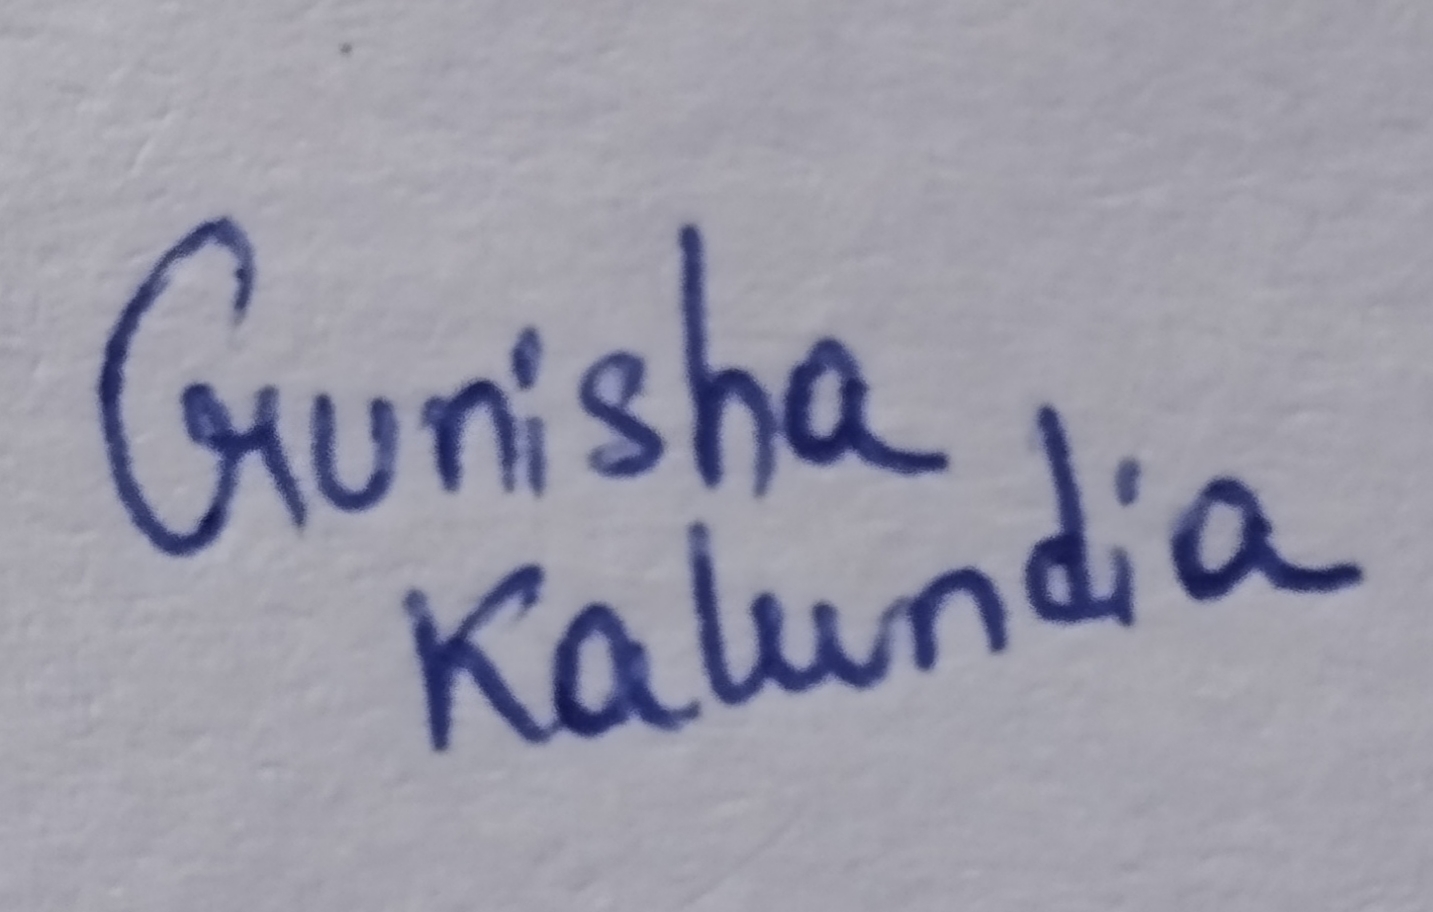 Gunisha
Kalundia